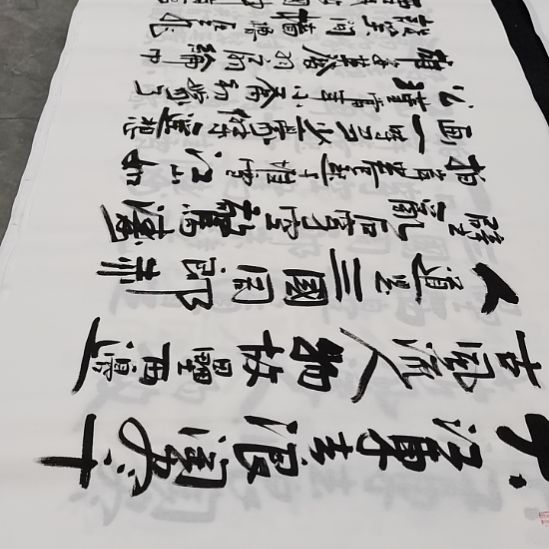 大江東去浪淘尽千
古風流人物故壘西邊
人道是三國周郎赤
壁亂石穿空驚濤
拍岸卷起千堆雪江山如
画一時多少豪傑遥想
公瑾當年小喬初嫁了
雄姿英發羽扇綸巾
談笑間檣櫓灰飛